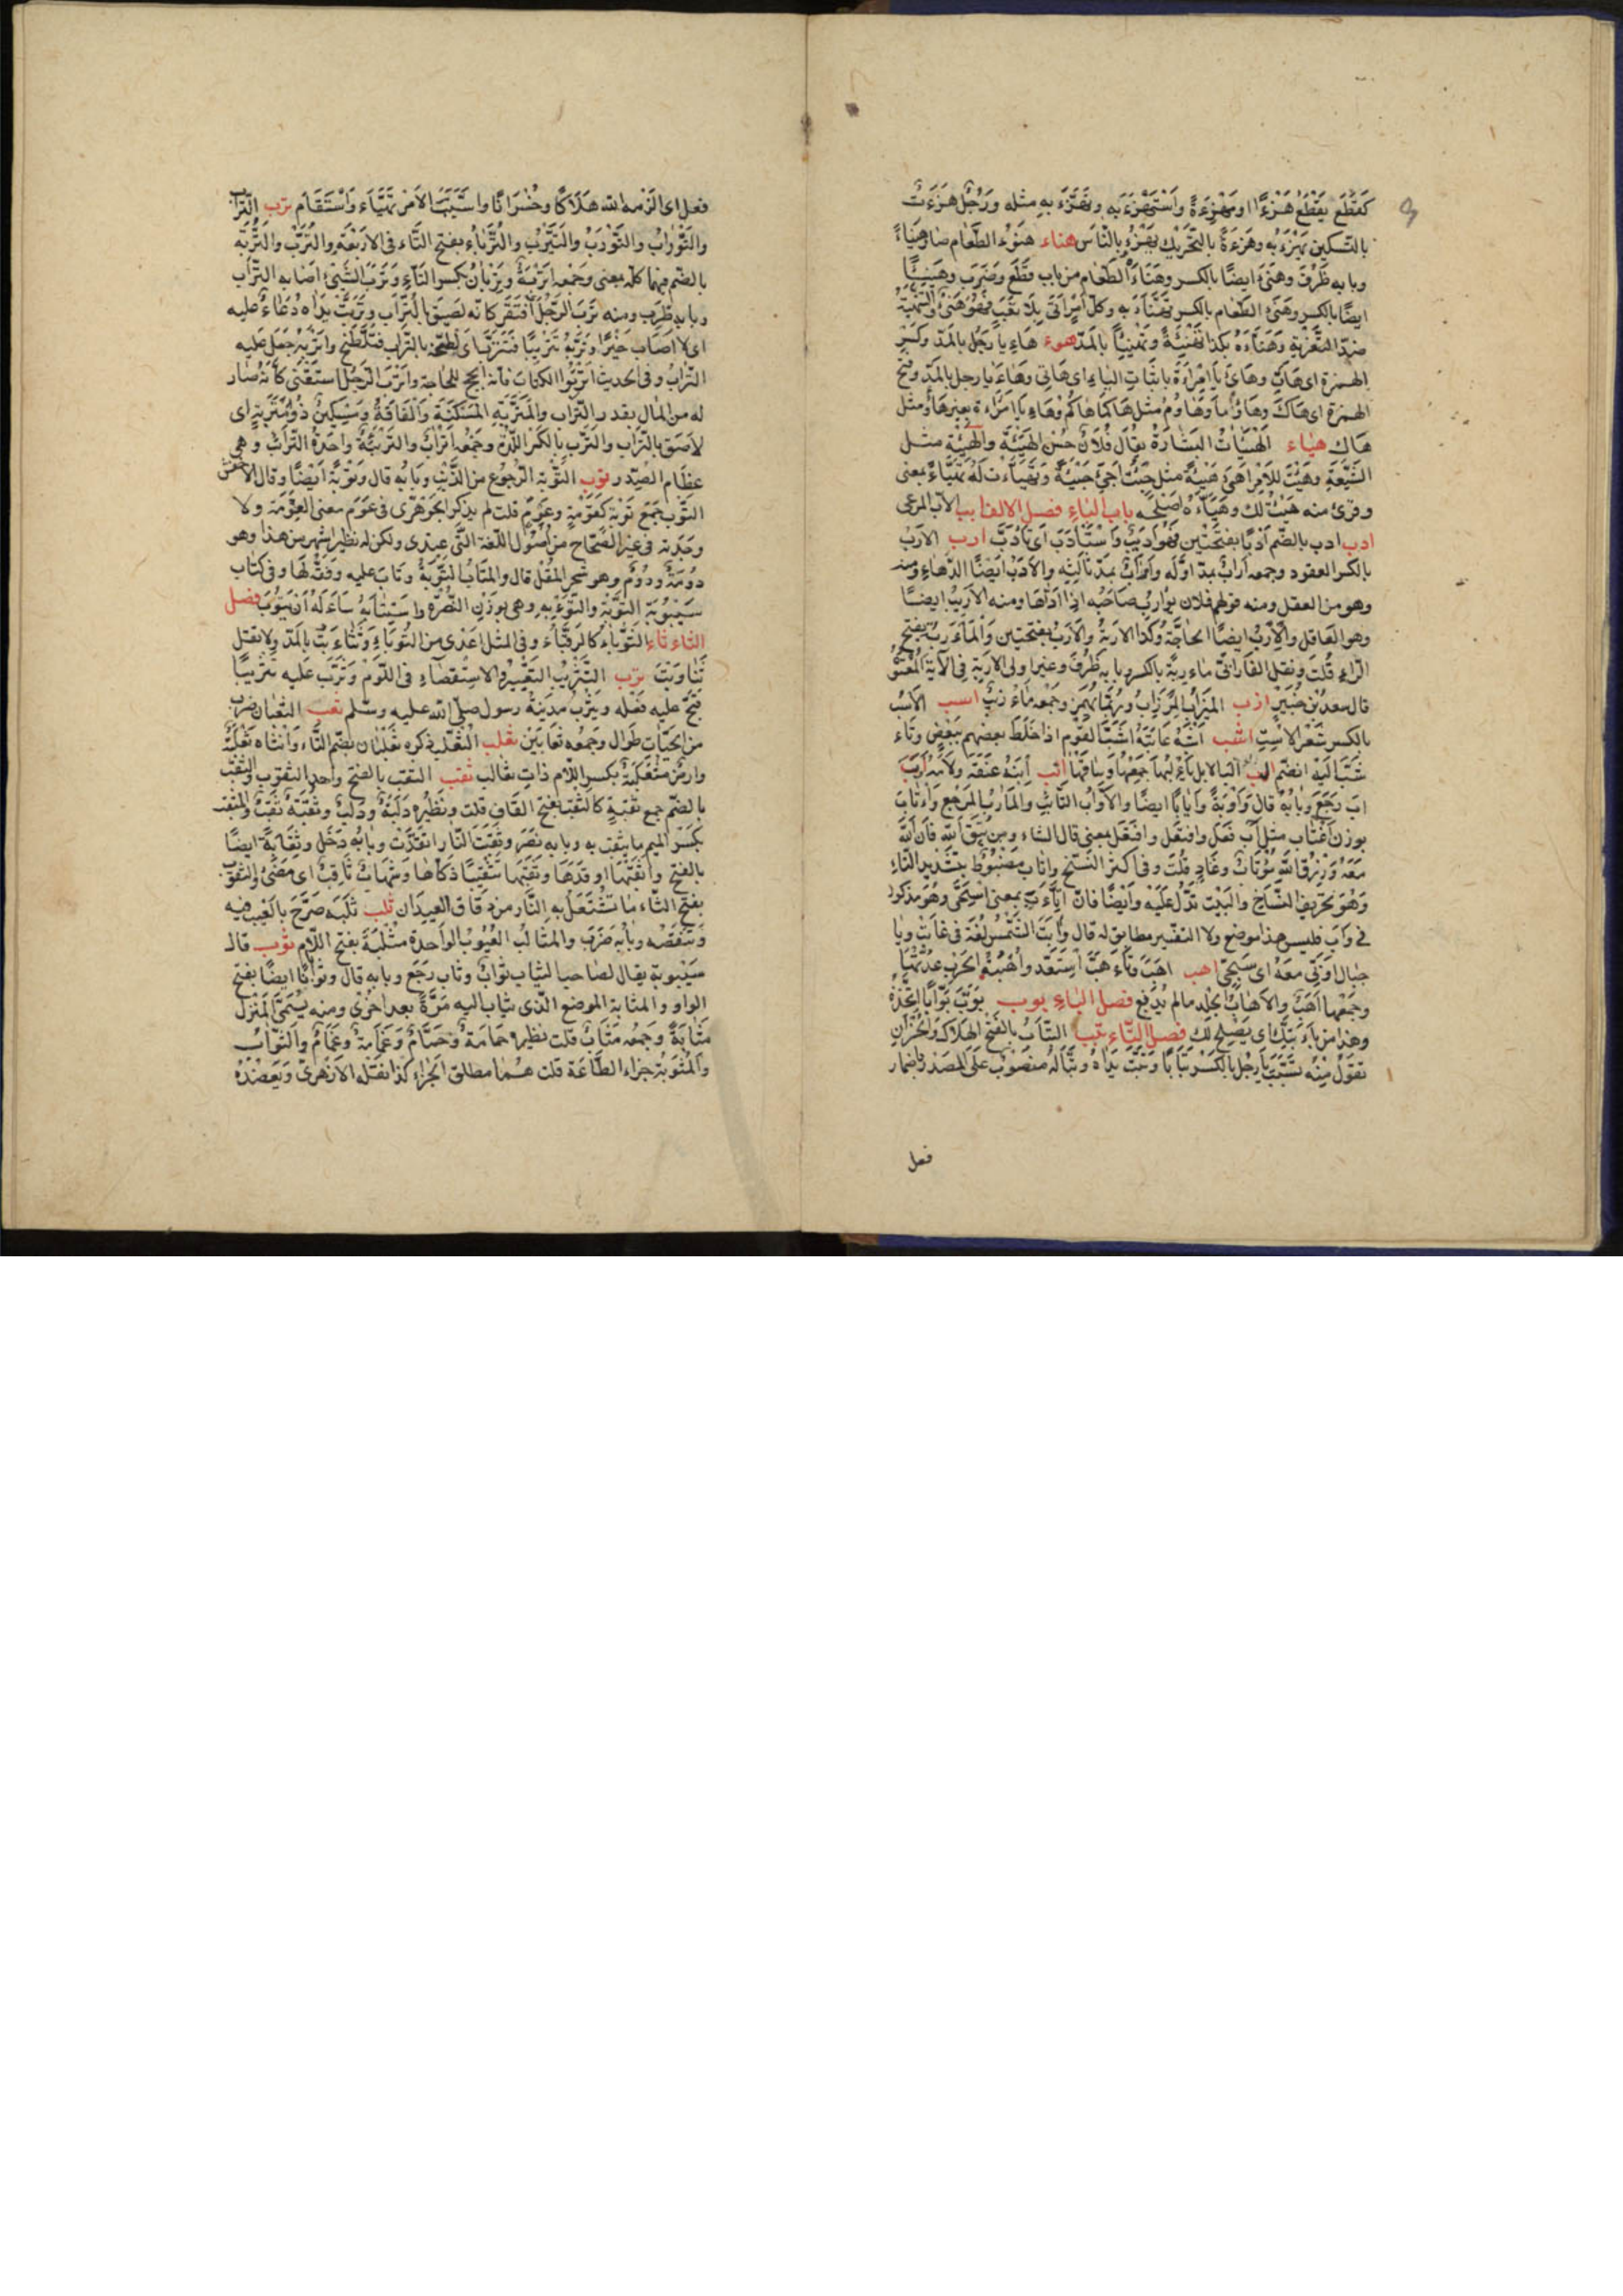 كقطع يقطع هزءا ومهزءة واستهزء به وتهزء به مثله ورجل هزءة
بالتسكين يهزء به وهزءة بالتحريك يهزء بالناس هناء هنوء الطعام صار هنيئا
وبابه ظرف وهنئ ايضا بالكسر وهناء الطعام من باب قطع وضرب وهنيئا
ايضا بالكسر وهنئ الطعام بالكسر تهنأ به وكل امر اتى بلا تعب فهو هنئ والتهنئة
ضد التعزية وهناءه بكذا تهنئة وتهنيئا بالمد هوء هاء يا رجل بالمد وكسر
الهمزة اى هات وهائ يا امراءة باثبات الياء اى هاتى وهاء يا رجل بالمد وفتح
الهمزة اى هاك وهاؤما وهاؤم مثل هاكما هاكم وهاء يا امراءة بغير ياء مثل
هاك هياء الهيئات الشارة يقال فلان حسن الهيئة والهيئة مثل
الشيعة وهئت للامر اهئ هيئة مثل جئت اجئ جيئة وتهياءت له تهيئا بمعنى
وقرئ منه هئت لك وهياءه اصلحه باب الباء فصل الالف ابب الاب المرعى
ادب ادب بالضم ادبا بفتحتين فهو اديب واستادب اى تادب ارب الارب
بالكسر العضو وجمعه اراب بمد اوله واراب بمد ثالثه والارب ايضا الدهاء
وهو من العقل ومنه قولهم فلان يوارب صاحبه اذا داهاه ومنه الاريب ايضا
وهو العاقل والارب ايضا الحاجة وكذا الاربة والارب بفتحتين والماربة بفتح
الراء قلت ونقل الفارابى ماربة بالكسر وبابه ظرف وغير اولى الاربة فى الآية المعتوه
قال سعد بن جبير ازب الميزاب المرزاب وربما لم يهمز وجمعه مازيب اسب الاسب
بالكسر شعر الاست اشب اشبه عابه اشب القوم اذا خلط بعضهم ببعض وتاء
شب اليه انضم الب الب الابل جمعها وساقها انب انبه عنفه ولامه اوب
اب رجع وبابه قال واوبة وايابا ايضا والاواب التائب والماب المرجع واءتاب
بوزن اغتاب مثل آب فعل وافتعل بمعنى قال الشاعر ومن يتق الله فان الله
معه ورزق الله مؤتاب وغاد قلت وفى اكثر النسخ واتاب مضبوط بتشديد التاء
وهو تحريف النساخ والبيت تدل عليه وايضا فان اتاءب بمعنى استحيى وهو مذكور
فى واب فليس هذا موضعه ولا التفسير مطابق له قال وابت الشمس لغة فى غابت ويا
جبال اوبى معه اى سبحى اهب اهب وتاءهب استعد واهبة الحرب عدتها
وجمعها اهب والاهاب الجلد مالم يدبغ فصل الباء بوب بوب بوابا اتخذه
وهذا من بابتك اى يصلح لك فصل التاء تبب التباب بالفتح الهلاك والخسران
تقول منه تببت يا رجل بالكسر تبابا وتبت يداه وتبا له منصوب على المصدر باضمار
فعل
فعل اى الزمه الله هلاكا وخسرانا واستتب الامر تهياء واستقام ترب التراب
والتوراب والتورب والتيرب والترباء بفتح التاء فى الاربعة والترب والتربة
بالضم فيهما كله بمعنى وجمعه اتربة وتربان بكسر التاء وترب الشئ اصابه التراب
وبابه طرب ومنه ترب الرجل افتقر كانه لصق بالتراب وتربت يداه دعاء عليه
اى لا اصاب خيرا وتربه تتريبا فتترب اى لطخه بالتراب فتلطخ واتربه جعل عليه
التراب وفى الحديث اتربوا الكتاب فانه انجح للحاجة واترب الرجل استغنى كانه صار
له من المال بقدر التراب والمتربة المسكنة والفاقة ومسكين ذو متربة اى
لاصق بالتراب والترب بالكسر اللدة وجمعه اتراب والتريبة واحدة الترائب وهى
عظام الصدر توب التوبة الرجوع من الذنب وبابه قال وتوبة ايضا وقال الاخفش
التوب جمع توبة كعومة وعوم قلت لم يذكر الجوهرى فى عوم معنى العومة ولا
وجدته فى غير الصحاح من اصول اللغة التى عندى ولكن له نظير اشهر من هذا وهو
دومة ودوم وهو شجر المقل قال والمتاب التوبة وتاب عليه وفقه لها وفى كتاب
سيبويه التتوبة والتوبة وهى بوزن التبصرة واستتابه ساءله ان يتوب فصل
الثاء ثاء الثوباء كالرقباء وفى المثل اعدى من الثوباء وتثاءبت بالمد ولا تقل
تثاوبت ثرب التثريب التعيير والاستقصاء فى اللوم وثرب عليه تثريبا
قبح عليه فعله ويثرب مدينة رسول صلى الله عليه وسلم ثعب الثعبان ضرب
من الحيات طوال وجمعه ثعابين ثعلب الثعلب ذكره ثعلبان بضم الثاء وانثاه ثعلبة
وارض مثعلبة بكسر اللام ذات ثعالب ثقب الثقب بالفتح واحد الثقوب والثقب
بالضم جمع ثقبة كالثقب بفتح القاف قلت ونظيره دلبة ودلب وثقبة ثقب والمثقب
بكسر الميم ما يثقب به وبابه نصر وثقبت النار اتقدت وبابه دخل وثقابة ايضا
بالفتح واثقبها اوقدها وثقبها تثقيبا ذكاها وشهاب ثاقب اى مضئ والثقوب
بفتح الثاء ما تشتعل به النار من دقاق العيدان ثلب ثلبه صرح بالعيب فيه
وتنقصه وبابه ضرب والمثالب العيوب الواحدة مثلبة بفتح اللام ثوب قال
سيبويه يقال لصاحب الثياب ثواب وثاب رجع وبابه قال وثوابا ايضا بفتح
الواو والمثابة الموضع الذى يثاب اليه مرة بعد اخرى ومنه يسمى المنزل
مثابة وجمعه مثاب قلت نظيره حمامة وحمام وغمامة وغمام والثواب
والمثوبة جزاء الطاعة قلت هما مطلق الجزاء كذا نقله الازهرى ويعضده